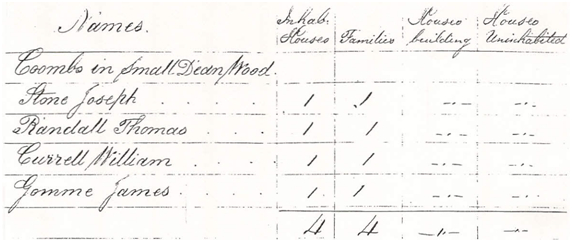 Names. Inhab. Houses Families Houses building Houses Uninhabited
Coombs in Small Dean Wood.
Stone Joseph . . . . 1 1 -.- -.-
Randall Thomas . . . 1 1 -.- -.-
Currell William . . . . 1 1 -.- -.-
Gomme James . . . . 1 1 -.- -.-
4 4 -.- -.-